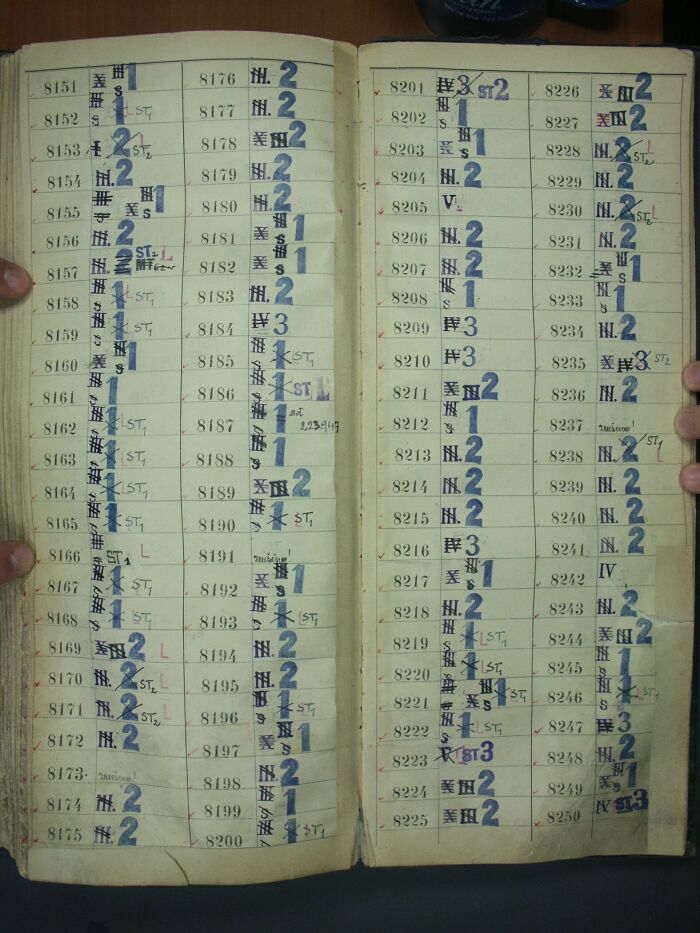 8151 X S 1
8152 S 1 L ST1
8153 I 2 L ST2
8154 III. 2
8155 X S 1
8156 III. 2
8157 III. 2 ST2 L
8158 S 1 L ST1
8159 S 1 L ST1
8160 X S 1
8161 S 1
8162 S 1 L ST1
8163 S 1 L ST1
8164 S 1 L ST1
8165 S 1 ST1
8166 S ST1 L
8167 S 1 L ST1
8168 S 1 L ST1
8169 X III 2 L
8170 III. 2 ST2 L
8171 III. 2 ST2 L
8172 III. 2
8173 zrušeno!
8174 III. 2
8175 III. 2
8176 III. 2
8177 III. 2
8178 X III 2
8179 III. 2
8180 III. 2
8181 X S 1
8182 X S 1
8183 III. 2
8184 IV 3
8185 S 1 ST1
8186 S 1 ST 1
8187 1 223947
8188 S 1
8189 X III 2
8190 S 1 ST1
8191 zrušeno!
8192 X S 1
8193 S 1 L ST1
8194 III. 2
8195 III. 2
8196 S 1 ST1
8197 X S 1
8198 III. 2
8199 S 1
8200 1 ST1
8201 IV 3 ST2
8202 S 1
8203 X S 1
8204 III. 2
8205 V L
8206 III. 2
8207 III. 2
8208 S 1
8209 IV 3
8210 IV 3
8211 X III 2
8212 S 1
8213 III. 2
8214 III. 2
8215 III. 2
8216 IV 3
8217 X S 1
8218 III. 2
8219 S 1 L ST1
8220 S 1 L ST1
8221 X S 1 ST1
8222 S 1 L ST1
8223 V ST3
8224 X III 2
8225 X III 2
8226 X III 2
8227 X III 2
8228 III. 2 L ST2
8229 III. 2
8230 III. 2 L ST2
8231 III. 2
8232 X S 1
8233 S 1
8234 III. 2
8235 X IV 3 ST2
8236 III. 2
8237 zrušeno!
8238 III. 2 ST1 L
8239 III. 2
8240 III. 2
8241 III. 2
8242 IV
8243 III. 2
8244 X III 2
8245 S 1
8246 S 1 L ST1
8247 IV 3
8248 III. 2
8249 X S 1
8250 IV ST3